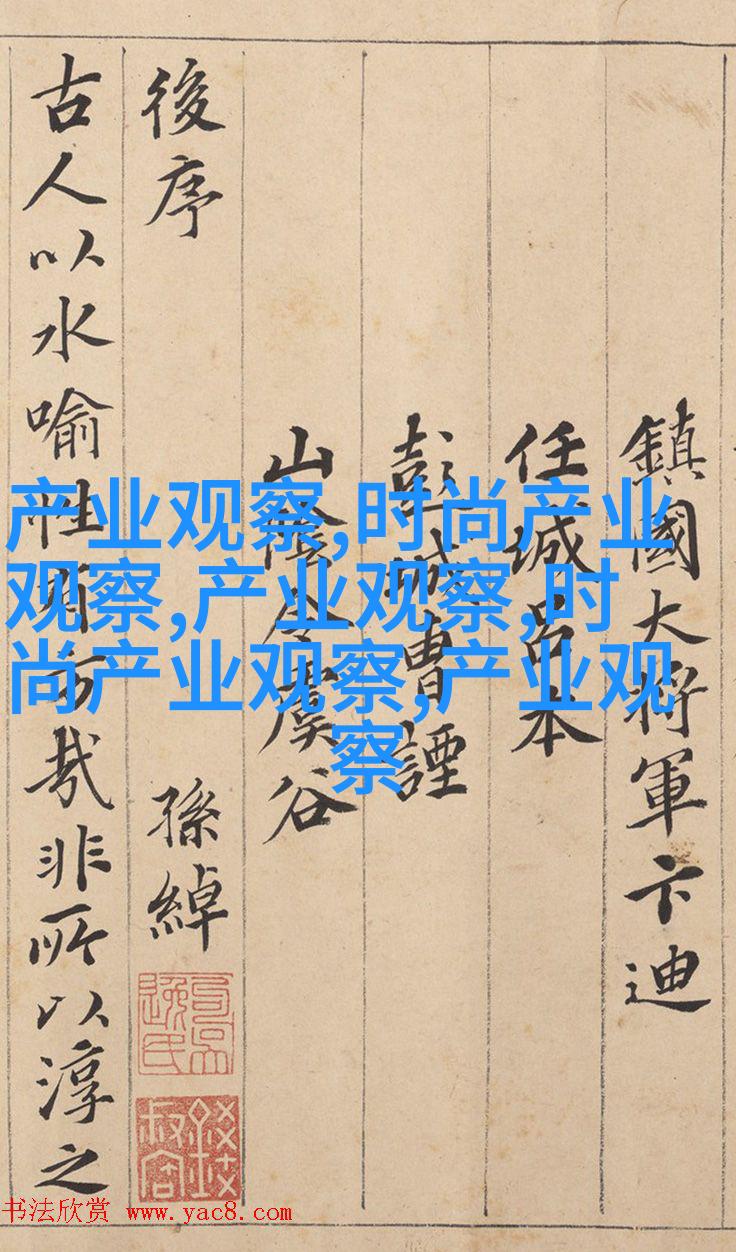 鎮國大将軍卞迪
任城呂本
彭城曹諲
山陰令虞谷
後序 孫綽
古人以水喻性有旨哉非所以淳之
产业观察,时尚产业
观察,产业观察,时
尚产业观察,产业观
察
书法欣赏 www.yac8.com